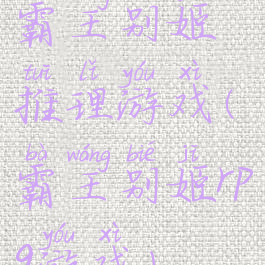 霸王别姬
tuī lǐ yóu xì
推理游戏(
bà wáng biē jī
霸王别姬rp
yóu xì
g游戏)